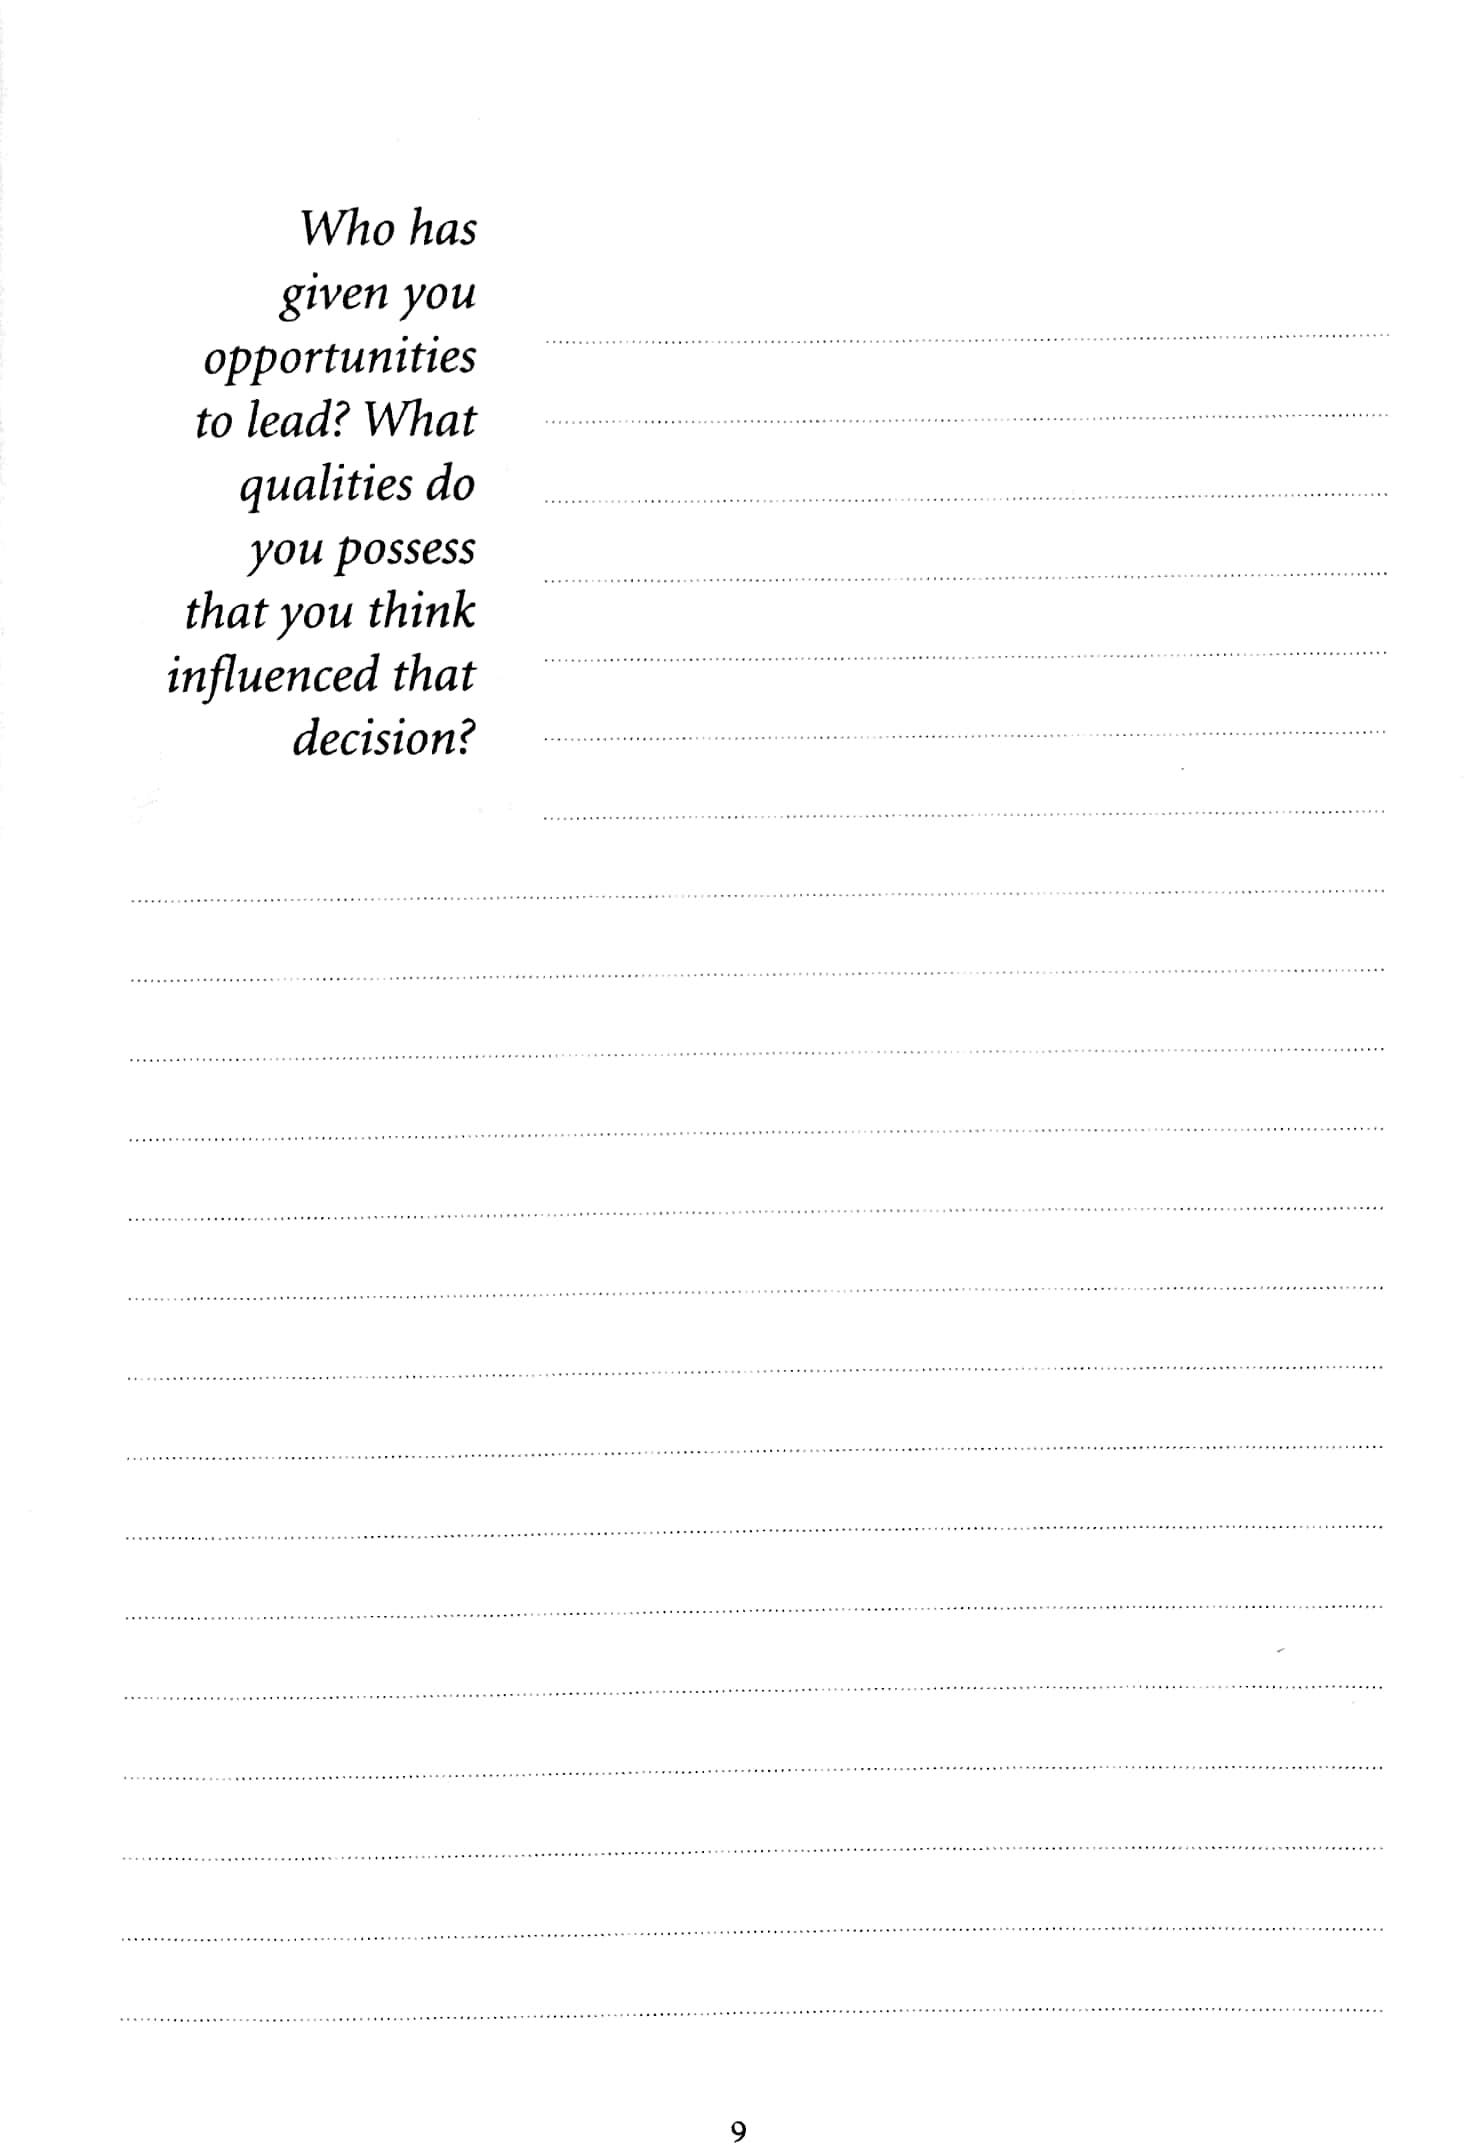 Who has
given you
opportunities
to lead? What
qualities do
you possess
that you think
influenced that
decision?
9